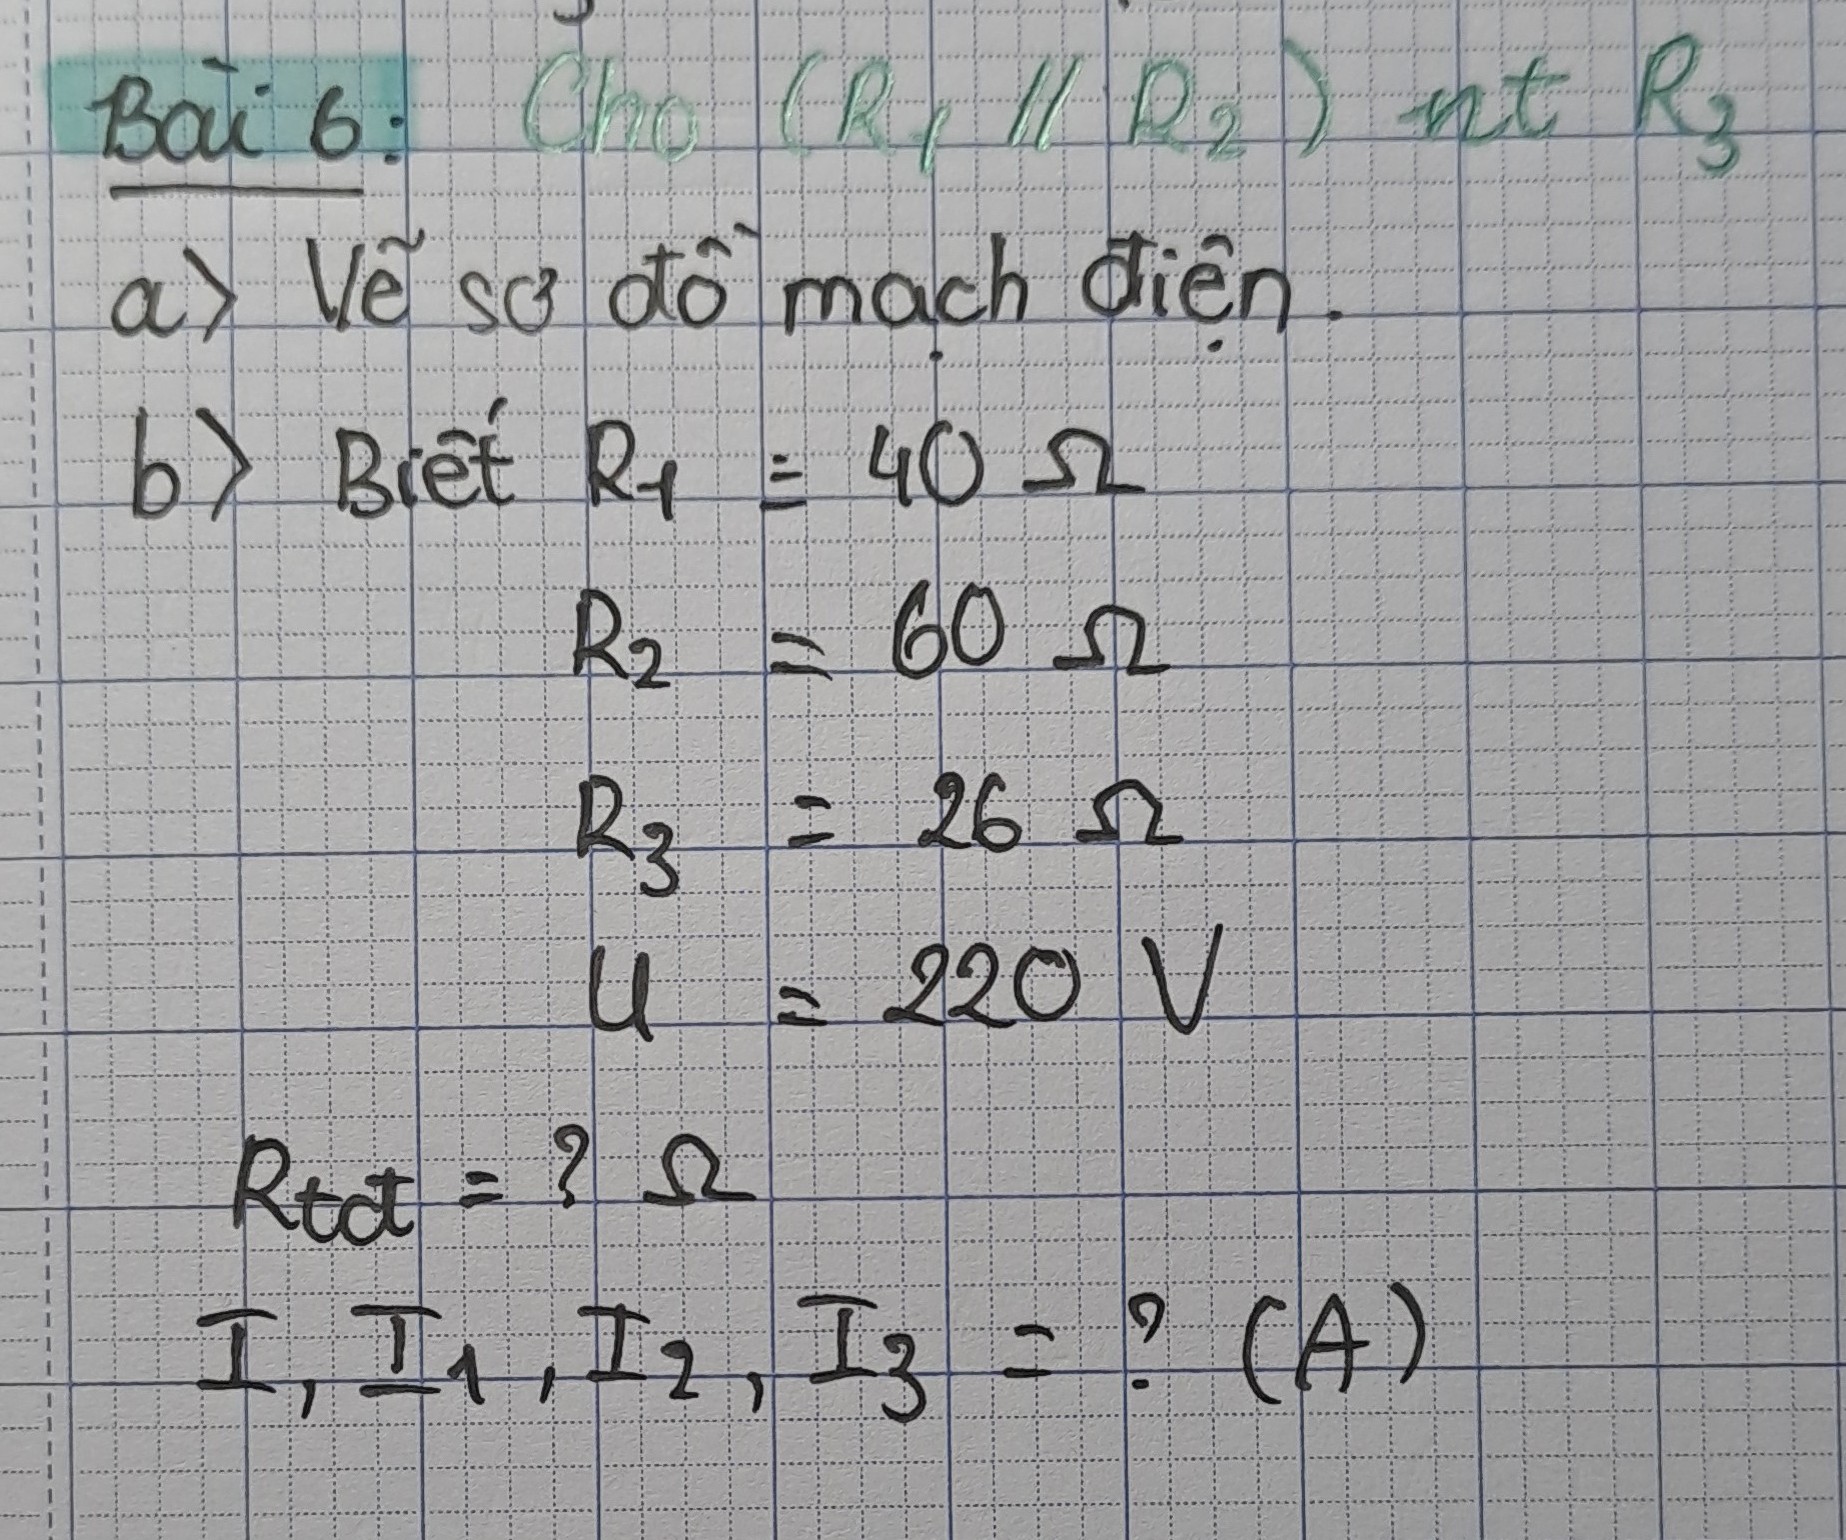 Bài 6: Cho (R1 // R2) nt R3
a> Vẽ sơ đồ mạch điện.
b> Biết R1 = 40 Ω
R2 = 60 Ω
R3 = 26 Ω
U = 220 V
Rtđ = ? Ω
I, I1, I2, I3 = ? (A)